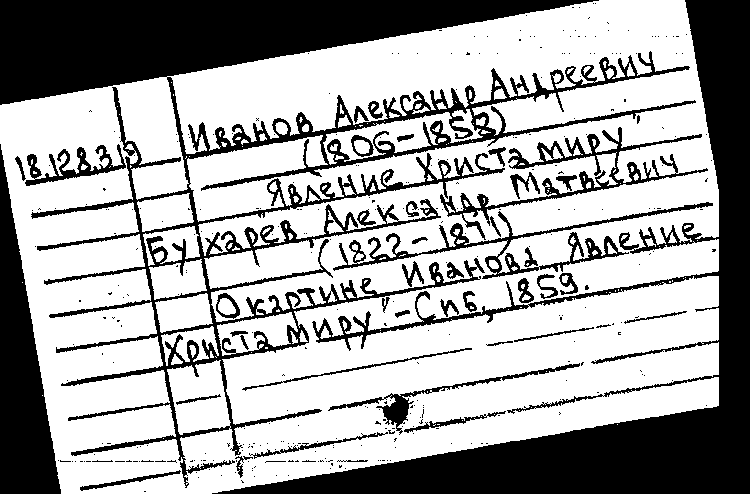 Иванов, Александр Андреевич
18.128.319
(1806-1858)
"Явление Христа миру"
Бухарев, Александр Матвеевич
(1822-1871)
О картине Иванова „Явление
Христа миру".-Спб, 1859.